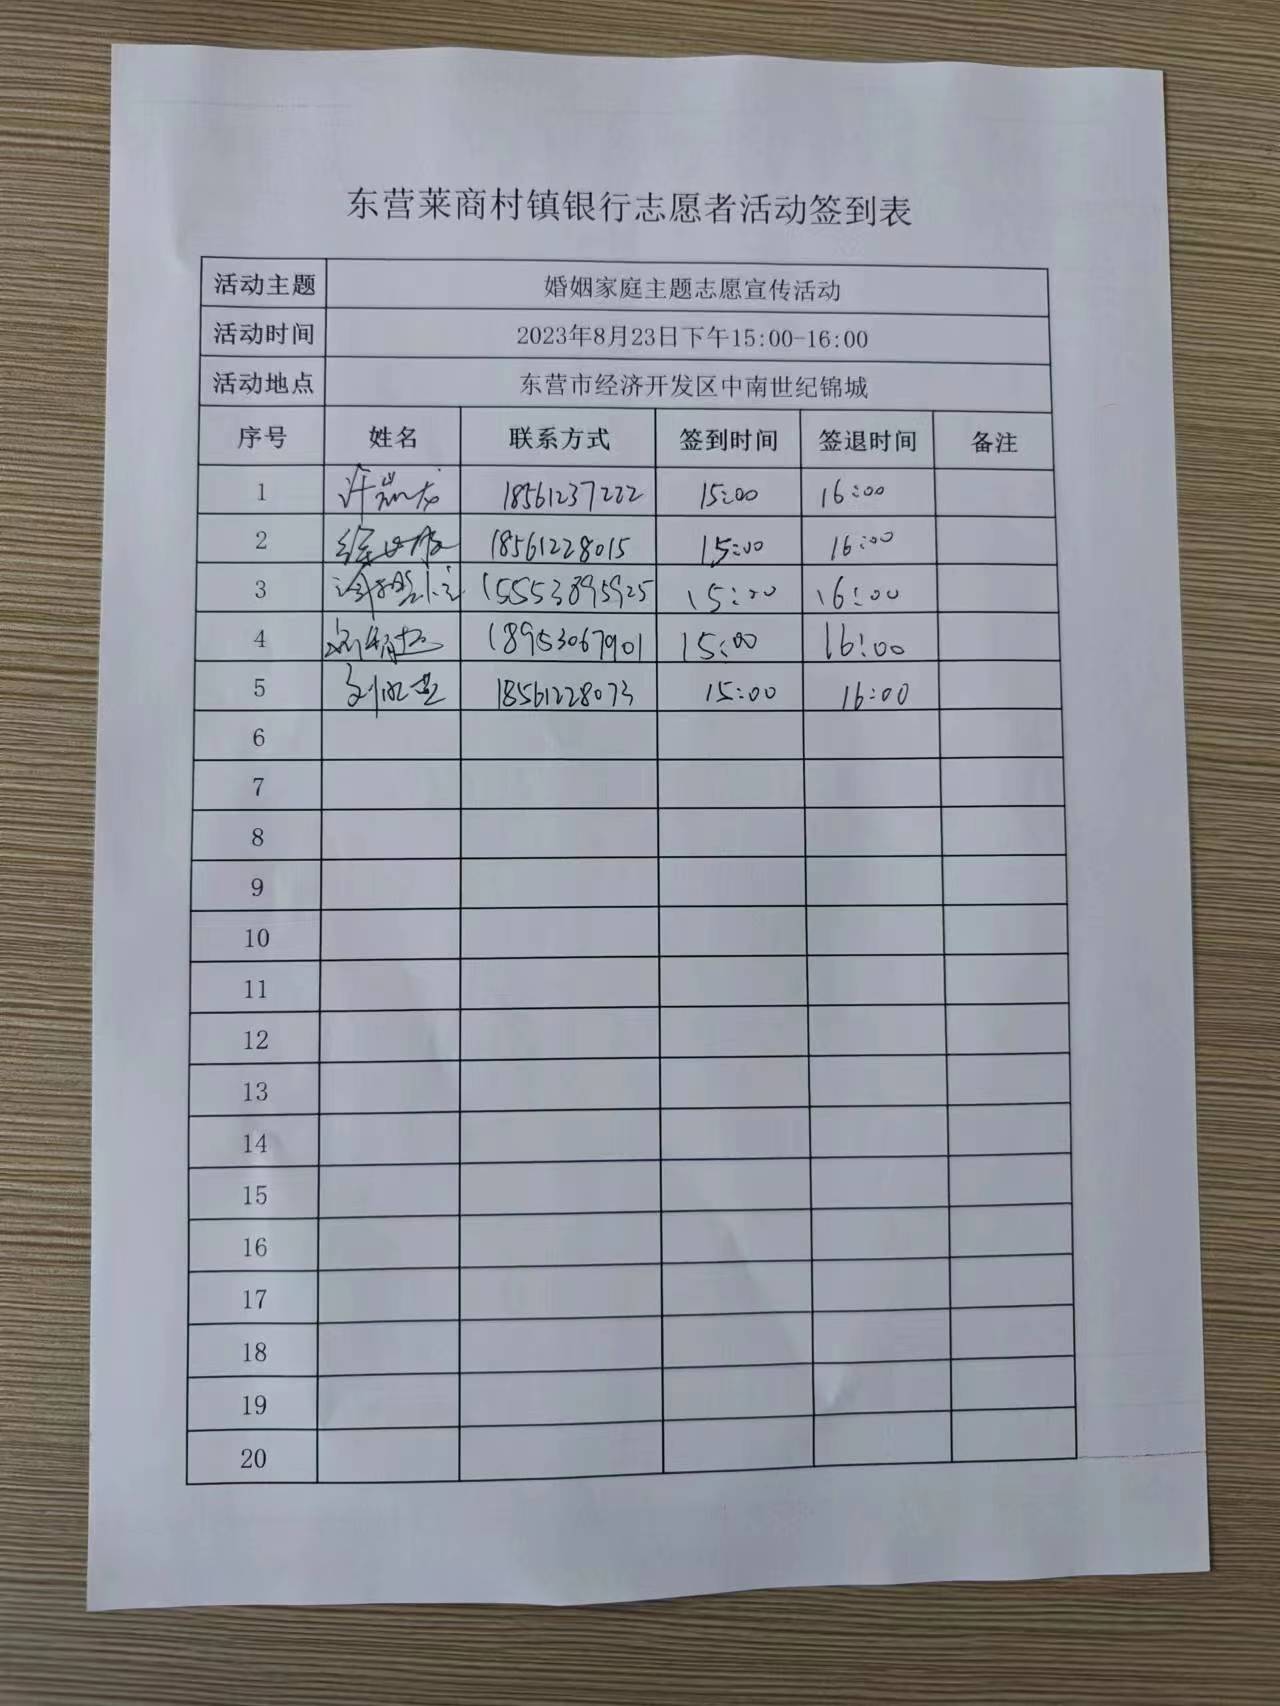 东营莱商村镇银行志愿者活动签到表
活动主题 婚姻家庭主题志愿宣传活动
活动时间 2023年8月23日下午15:00-16:00
活动地点 东营市经济开发区中南世纪锦城
序号 姓名 联系方式 签到时间 签退时间 备注
1 18561237222 15:00 16:00
2 18561228015 15:00 16:00
3 15553895925 15:00 16:00
4 18953067901 15:00 16:00
5 18561228073 15:00 16:00
6
7
8
9
10
11
12
13
14
15
16
17
18
19
20